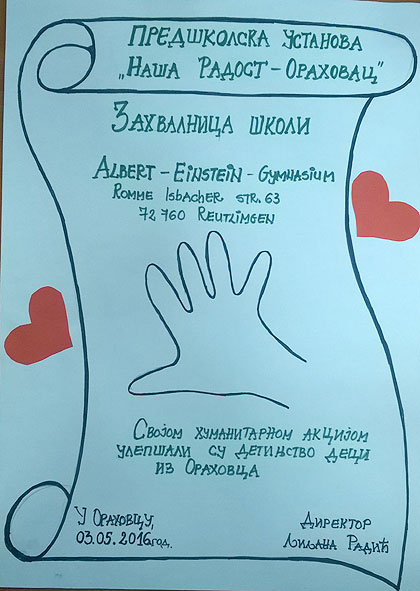 Предшколска установа
„Наша Радост - Ораховац"
Захвалница школи
Albert - Einstein - Gymnasium
Romme Isbacher str. 63
72 760 Reutlimgen
Својом хуманитарном акцијом
улепшали су детињство деци
из Ораховца
У Ораховцу,
03.05.2016 год.
Директор
Љиљана Радић